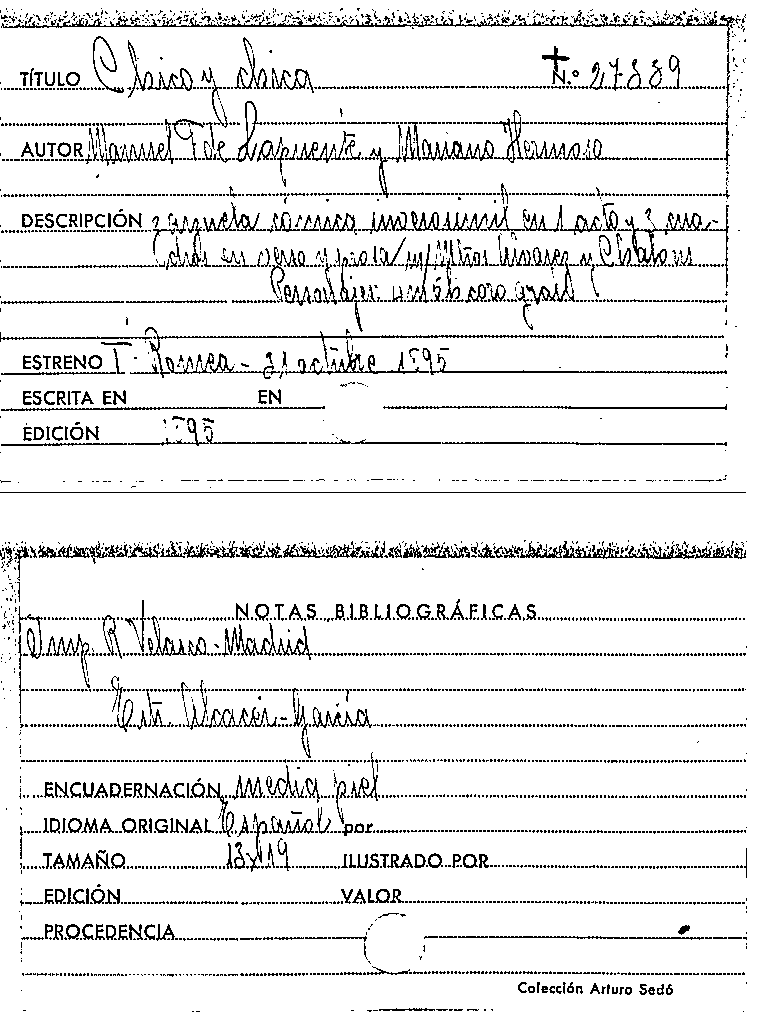 TÍTULO Chico y chica N.º 27889
AUTOR Manuel F de Lapuente y Mariano Hermoso
DESCRIPCIÓN zarzuela cómica inverosimil en 1 acto y 3 cua-
dros en verso y prosa m/Mtros Alvarez y
Personajes: coro gral
ESTRENO T. Romea - 31 octubre 1895
ESCRITA EN EN
EDICIÓN 1895
NOTAS BIBLIOGRÁFICAS
Imp. R Velasco-Madrid
Estr. Alcacér-García
ENCUADERNACIÓN media piel
IDIOMA ORIGINAL Español por
TAMAÑO 13x19 ILUSTRADO POR
EDICIÓN VALOR
PROCEDENCIA
Colección Arturo Sedó